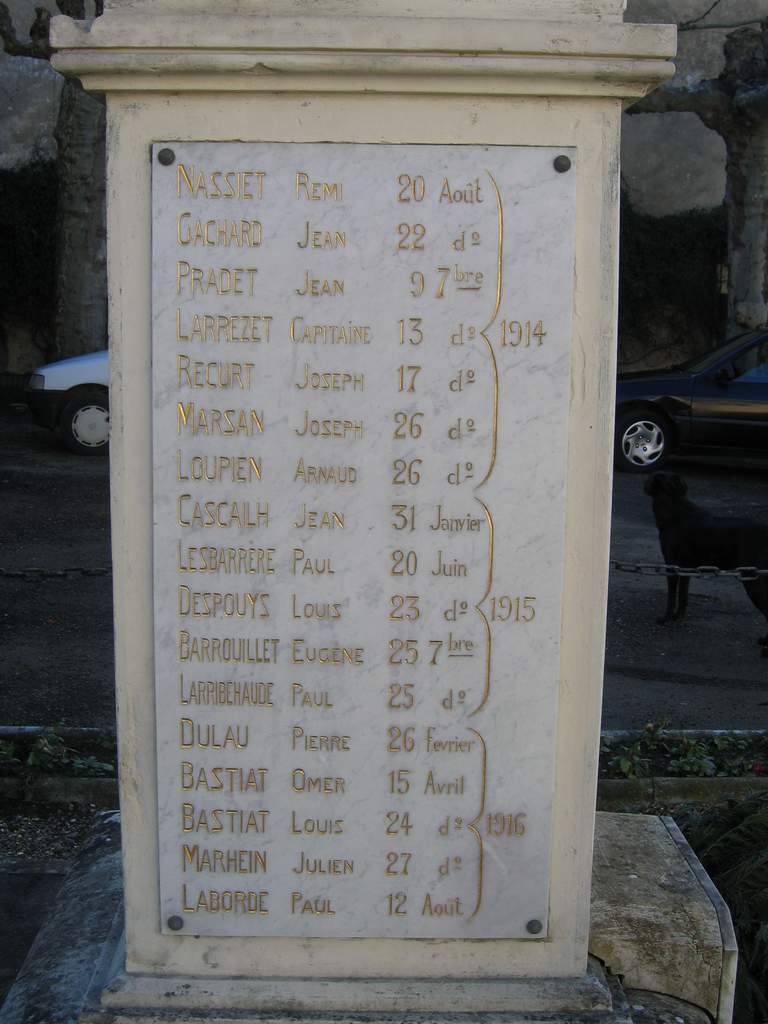 NASSIET REMI 20 Août
GACHARD JEAN 22 dº
PRADET JEAN 9 7bre
LARREZET CAPITAINE 13 dº 1914
RECURT JOSEPH 17 dº
MARSAN JOSEPH 26 dº
LOUPIEN ARNAUD 26 dº
CASCAILH JEAN 31 Janvier
LESBARRÈRE PAUL 20 Juin
DESPOUYS LOUIS 23 dº 1915
BARROUILLET EUGÈNE 25 7bre
LARRIBEHAUDE PAUL 25 dº
DULAU PIERRE 26 fevrier
BASTIAT OMER 15 Avril
BASTIAT LOUIS 24 dº 1916
MARHEIN JULIEN 27 dº
LABORDE PAUL 12 Août